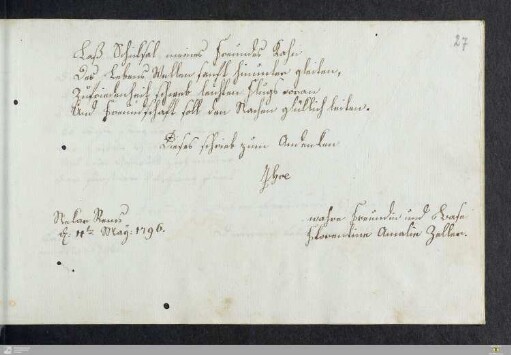 27
Laß Schicksal meines Freundes Kahn
Des Lebens Wellen sanft hinunter gleiten,
Zufriedenheit schweb leichten Flugs voran
Und Freundschaft soll den Nachen glücklich leiten.
Dieses schrieb zum Andenken
Ihre
d. 11te May. 1796.
wahre Freundin und Base
Florentina Amalie Zeller.